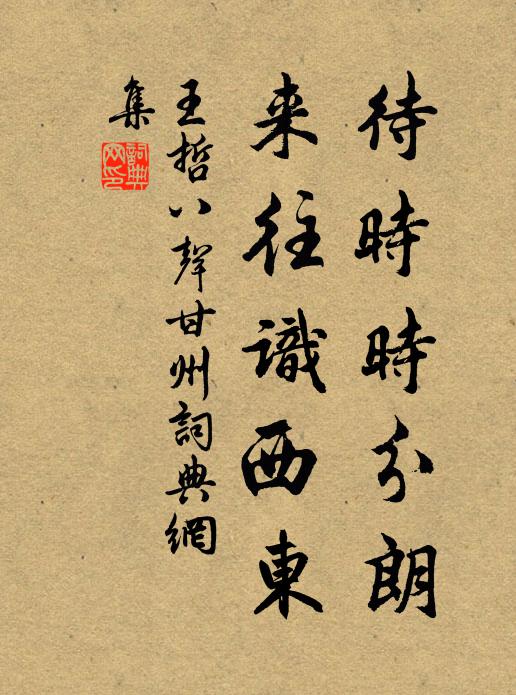 待時時分朗
来往識西東
王哲八聲甘州詞典網
集
詞典
网印